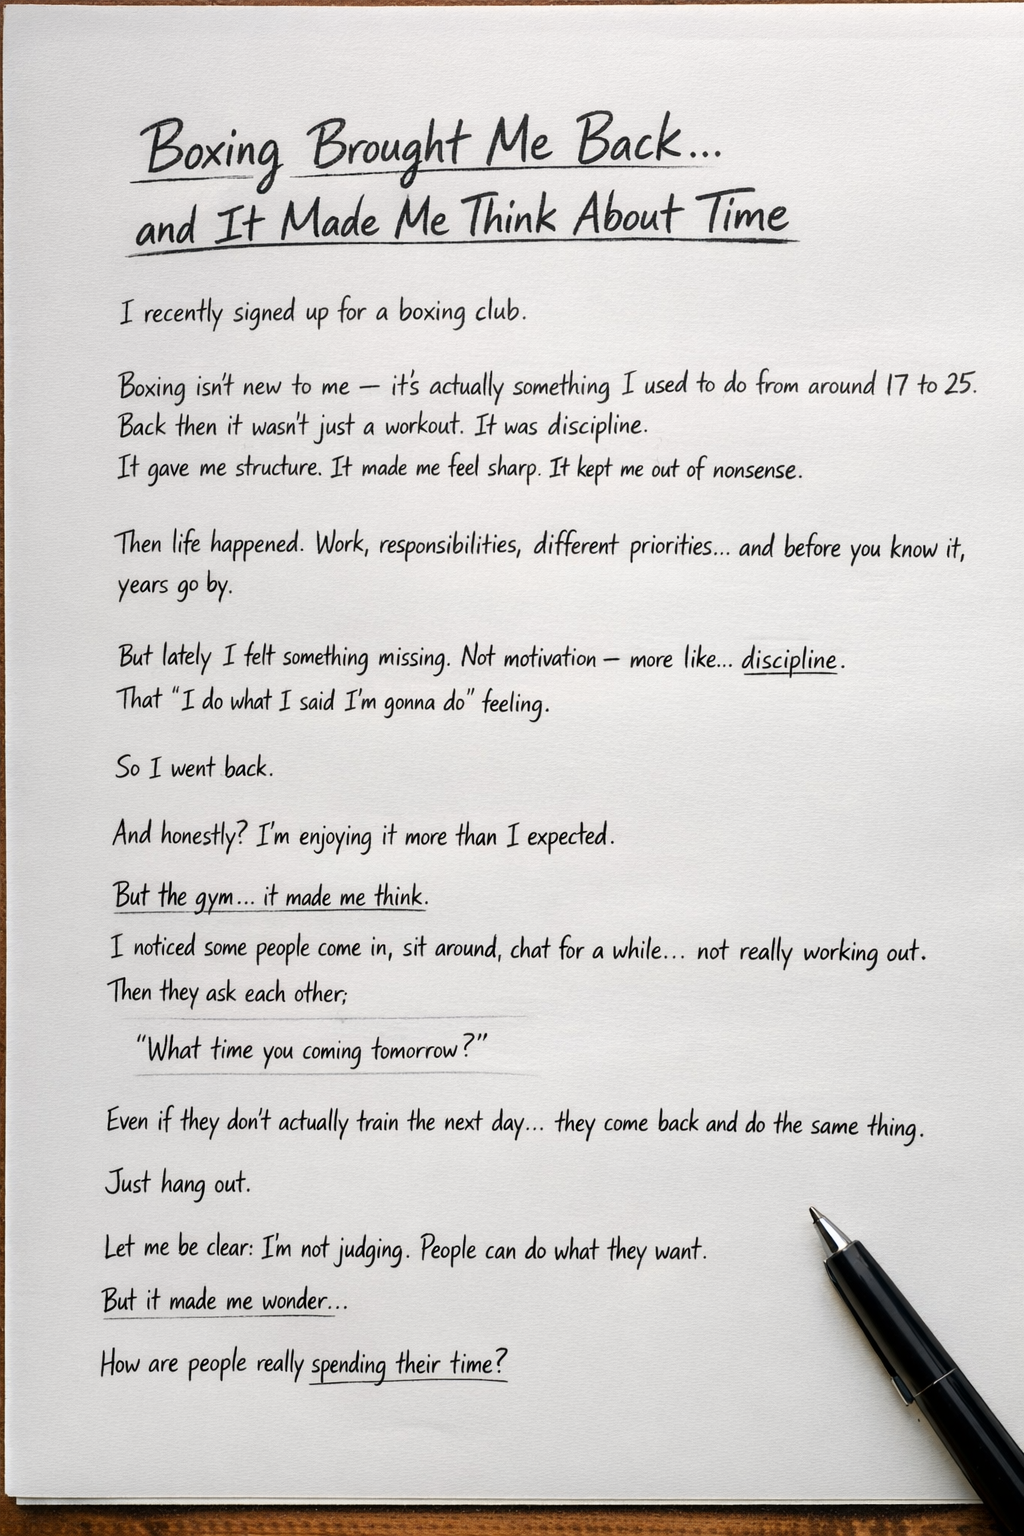 Boxing Brought Me Back...
and It Made Me Think About Time
I recently signed up for a boxing club.
Boxing isn't new to me — it's actually something I used to do from around 17 to 25.
Back then it wasn't just a workout. It was discipline.
It gave me structure. It made me feel sharp. It kept me out of nonsense.
Then life happened. Work, responsibilities, different priorities... and before you know it,
years go by.
But lately I felt something missing. Not motivation — more like... discipline.
That "I do what I said I'm gonna do" feeling.
So I went back.
And honestly? I'm enjoying it more than I expected.
But the gym... it made me think.
I noticed some people come in, sit around, chat for a while... not really working out.
Then they ask each other;
"What time you coming tomorrow?"
Even if they don't actually train the next day... they come back and do the same thing.
Just hang out.
Let me be clear: I'm not judging. People can do what they want.
But it made me wonder...
How are people really spending their time?